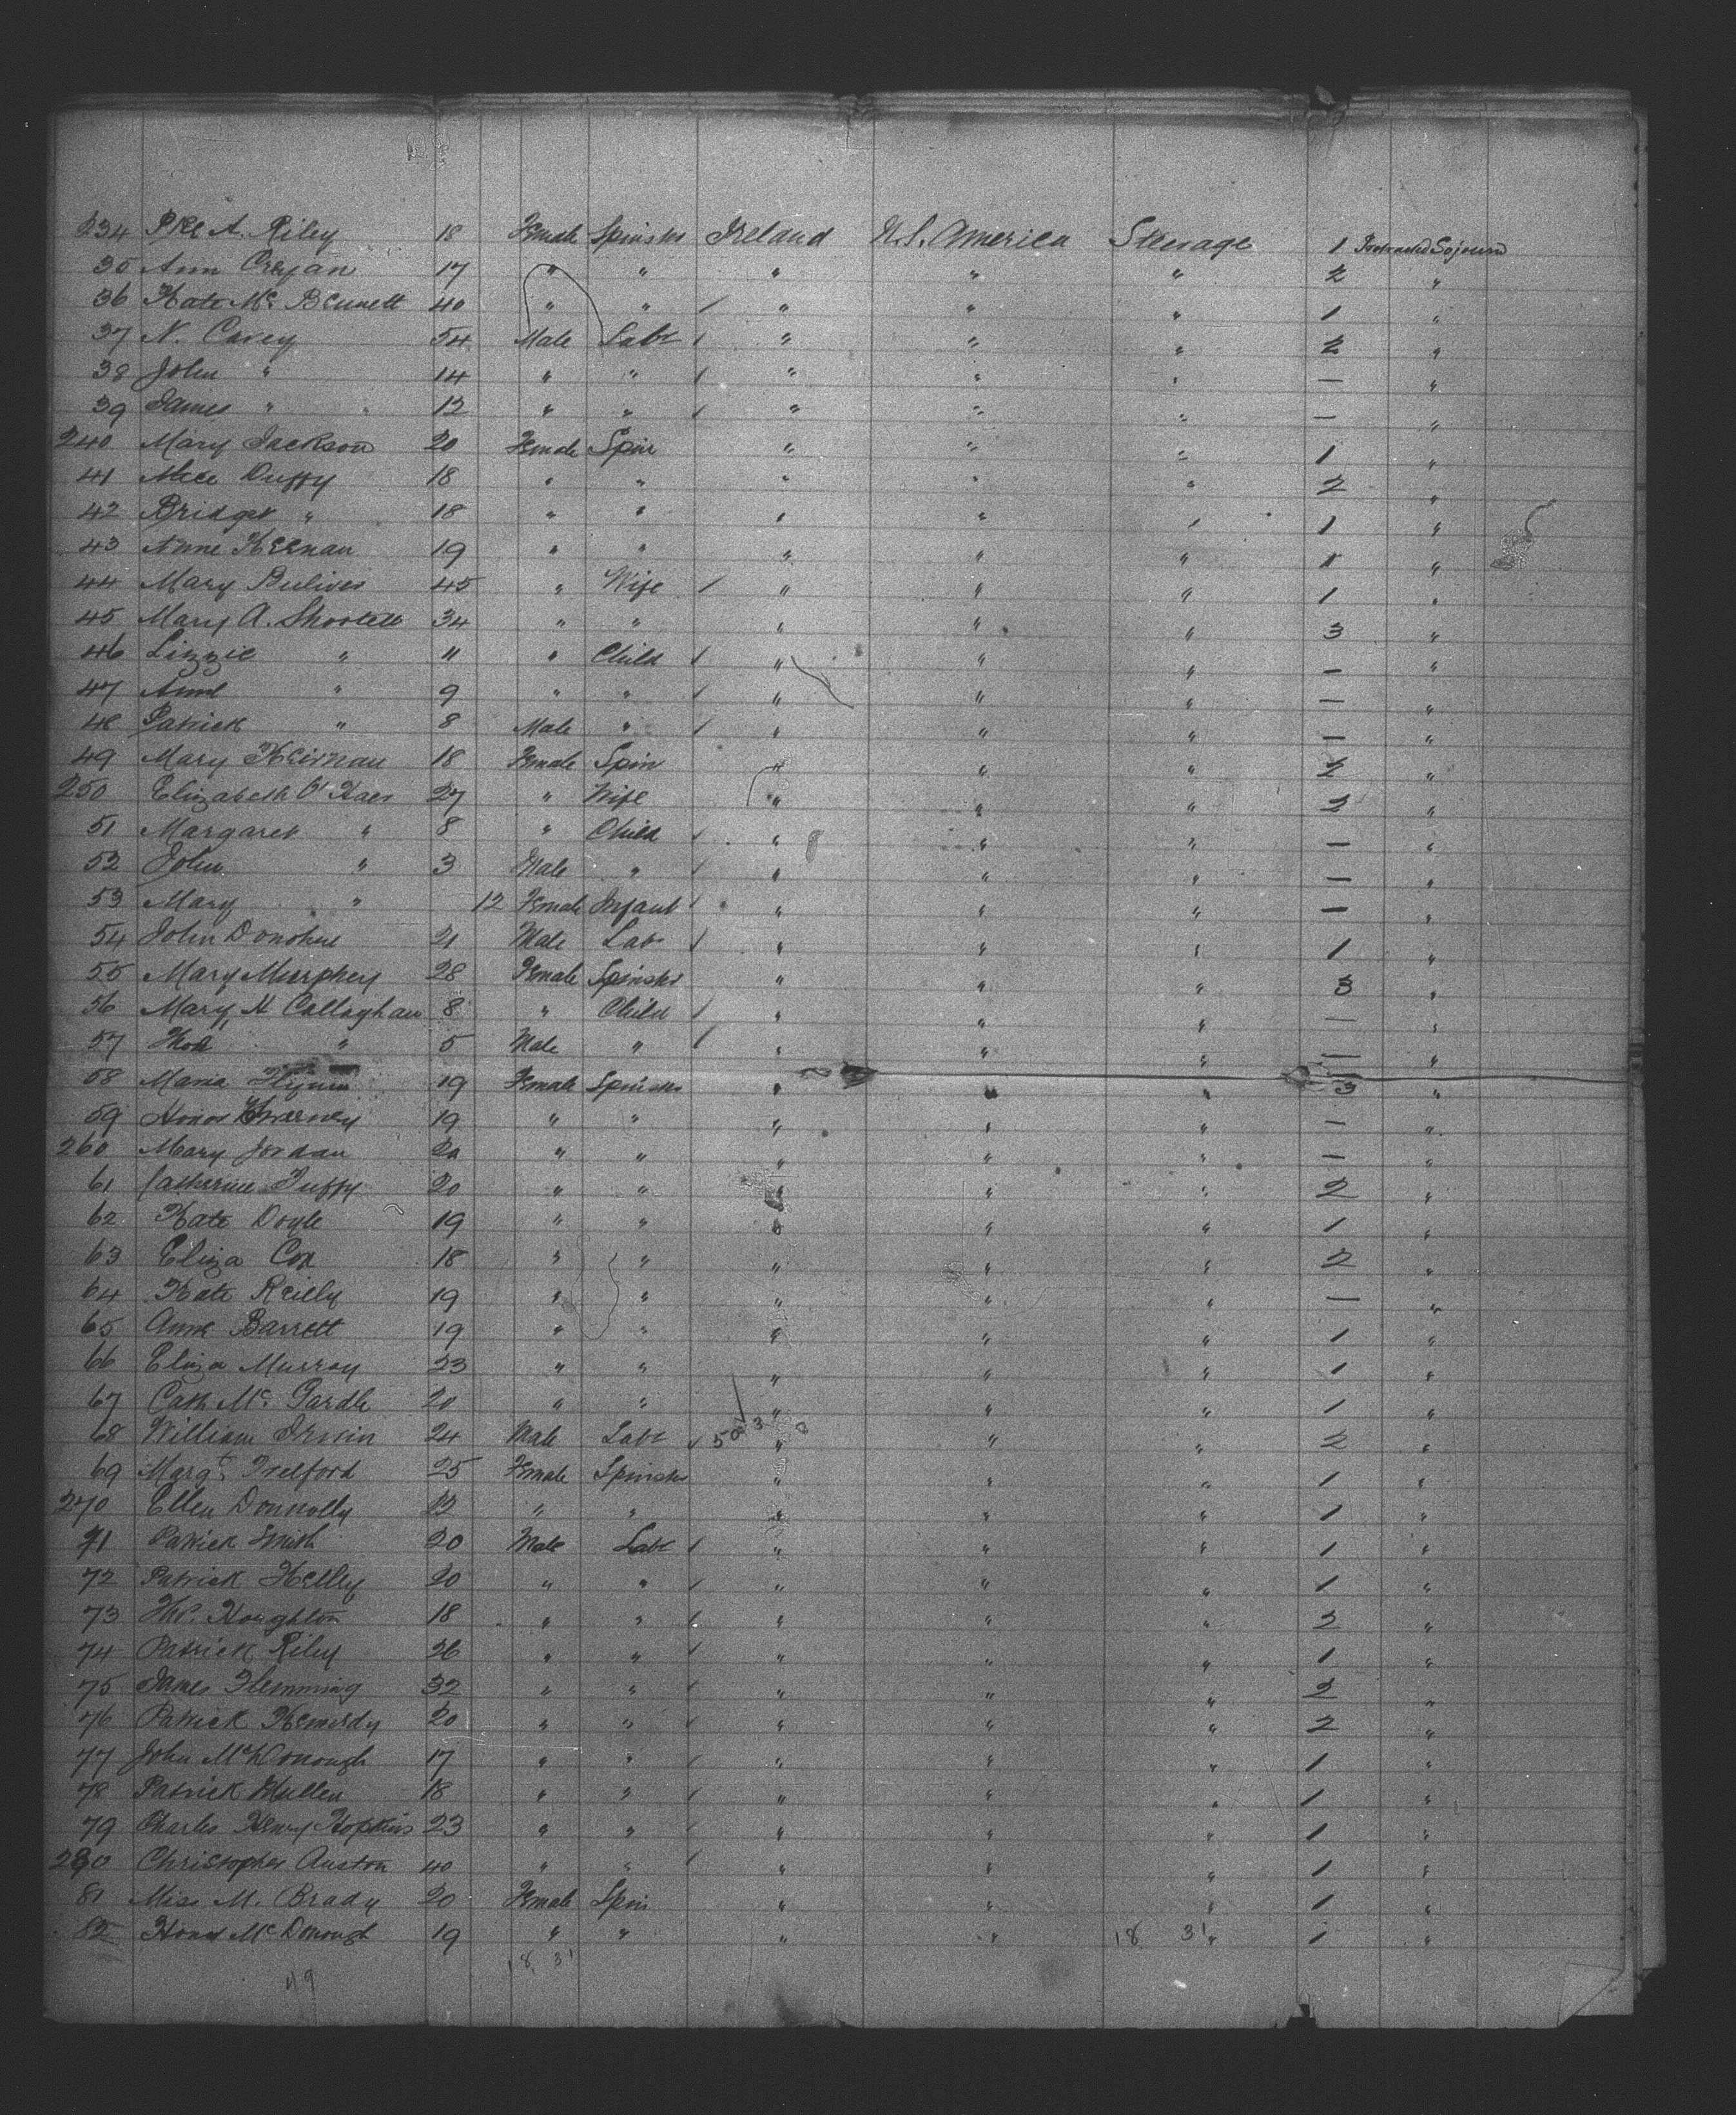 234 A. Riley 18 Female Spinster Ireland U.S. America Steerage 1 Protracted Sojourn
35 Ann Cregan 17 " " " " " 2 "
36 Kate Mc Bennett 40 " " / " " " 1 "
37 N. Carey 54 Male Labr / " " " 2 "
38 John " 14 " " / " " " — "
39 James " 12 " " / " " " — "
240 Mary Jackson 20 Female Spin " " " 1 "
41 Alice Duffy 18 " " " " " 2 "
42 Bridget " 18 " " " " " 1 "
43 Anne Keenan 19 " " " " " 1 "
44 Mary 45 " Wife / " " " 1 "
45 Mary A. Shortell 34 " " " " " 3 "
46 Lizzie " 11 " Child / " " " — "
47 Anne " 9 " " / " " " — "
48 Patrick " 8 Male " / " " " — "
49 Mary Keirnan 18 Female Spin " " " 2 "
250 Elizabeth 27 " Wife " " " 3 "
51 Margaret " 8 " Child / " " " — "
52 John " 3 Male " / " " " — "
53 Mary " 12 Female Infant / " " " — "
54 John Donohue 21 Male Labr / " " " 1 "
55 Mary Murphey 28 Female Spinster " " " 3 "
56 Mary A Callaghan 8 " Child / " " " — "
57 " 5 Male " / " " " — "
58 Maria Flynn 19 Female Spinster " " " 3 "
59 Honor 19 " " " " " — "
260 Mary Jordan " " " " " — "
61 Catherine Duffy 20 " " " " " 2 "
62 Kate Doyle 19 " " " " " 1 "
63 Eliza Cox 18 " " " " " 2 "
64 Kate Reilly 19 " " " " " — "
65 Anne Barrett 19 " " " " " 1 "
66 Eliza Murray 23 " " " " " 1 "
67 Cath Mc Gardle 20 " " " " " 1 "
68 William Irwin 24 Male Labr / " " " 2 "
69 Margt Trelford 25 Female Spinster " " " 1 "
270 Ellen Donnolly " " " " " 1 "
71 Patrick Smith 20 Male Labr / " " " 1 "
72 Patrick Kelley 20 " " / " " " 1 "
73 Houghton 18 " " / " " " 2 "
74 Patrick Riley 26 " " / " " " 1 "
75 James Flemming 32 " " / " " " 2 "
76 Patrick Kennedy 20 " " / " " " 2 "
77 John McDonough 17 " " / " " " 1 "
78 Patrick Mullen 18 " " / " " " 1 "
79 Charles Henry Hopkins 23 " " / " " " 1 "
280 Christopher Auston 40 " " / " " " 1 "
81 Miss M. Brady 20 Female Spin " " " 1 "
82 Honor McDonough 19 " " " " 18 31 " 1 "
18 31
49